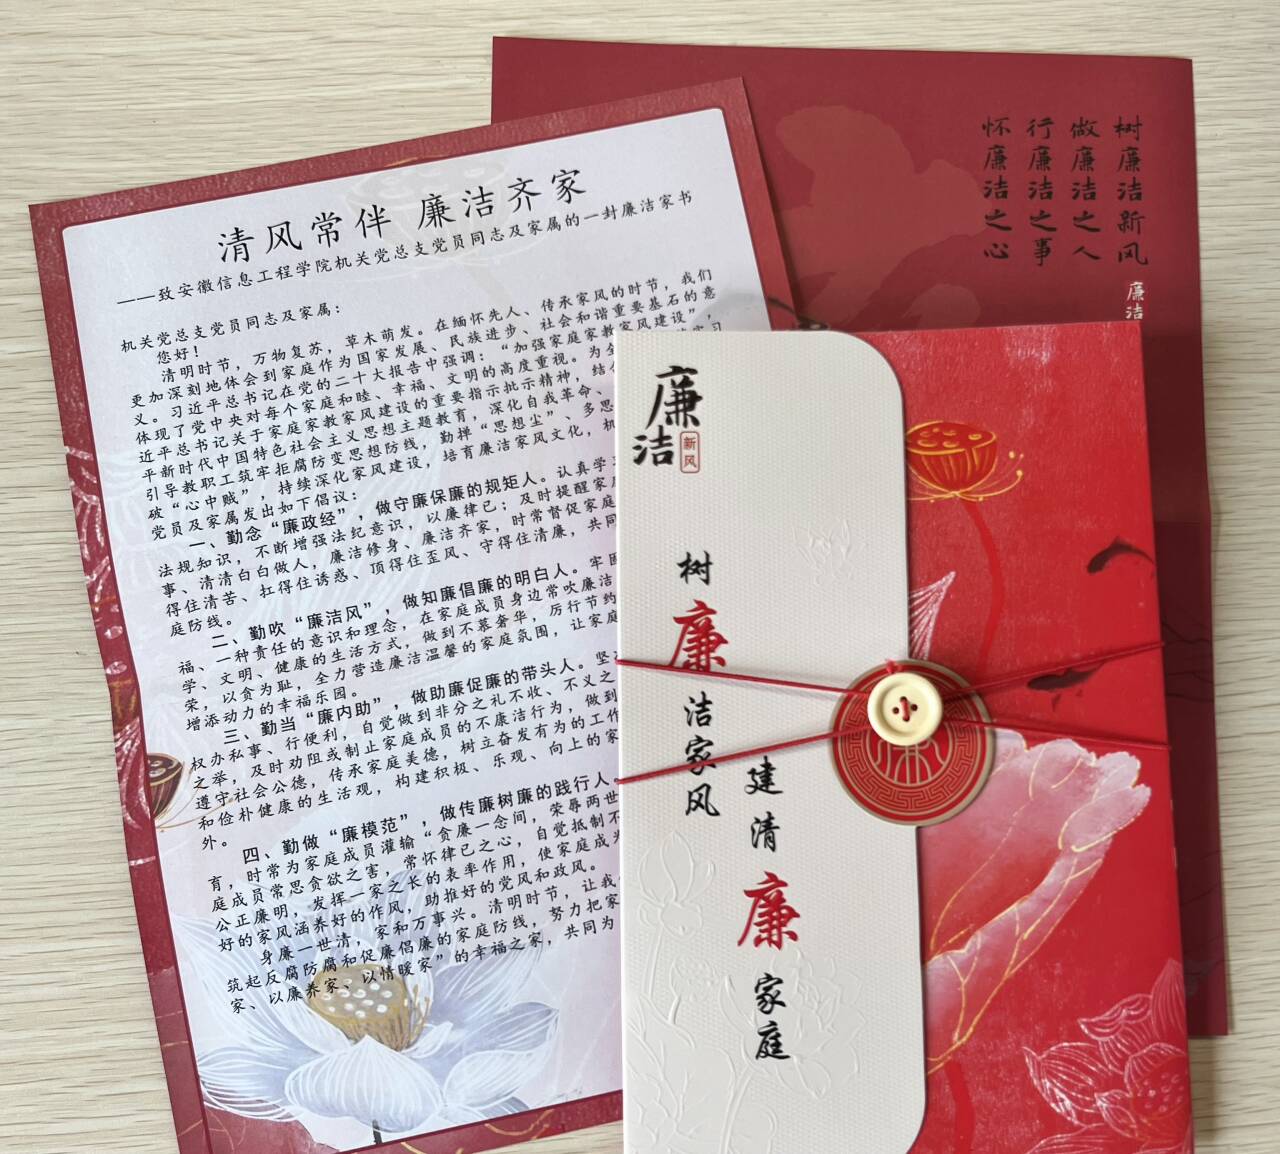 清风常伴 廉洁齐家
——致安徽信息工程学院机关党总支党员同志及家属的一封廉洁家书
机关党总支党员同志及家属：
您好！
清明时节，万物复苏，草木萌发。在缅怀先人、传承家风的时节，我们
更加深刻地体会到家庭作为国家发展、民族进步、社会和谐重要基石的意
义。习近平总书记在党的二十大报告中强调：“加强家庭家教家风建设”，
体现了党中央对每个家庭和睦、幸福、文明的高度重视。为全
近平总书记关于家庭家教家风建设的重要指示批示精神，结合
平新时代中国特色社会主义思想主题教育，深化自我革命、
引导教职工筑牢拒腐防变思想防线，勤掸“思想尘”、多思
破“心中贼”，持续深化家风建设，培育廉洁家风文化，机
党员及家属发出如下倡议：
一、勤念“廉政经”，做守廉保廉的规矩人。认真学习
法规知识，不断增强法纪意识，以廉律己；及时提醒家庭
事、清清白白做人，廉洁修身、廉洁齐家，时常督促家庭
得住清苦、扛得住诱惑、顶得住歪风、守得住清廉，共同
庭防线。
二、勤吹“廉洁风”，做知廉倡廉的明白人。牢固
福、一种责任的意识和理念，在家庭成员身边常吹廉洁
学、文明、健康的生活方式，做到不慕奢华，厉行节约
荣，以贪为耻，全力营造廉洁温馨的家庭氛围，让家庭
增添动力的幸福乐园。
三、勤当“廉内助”，做助廉促廉的带头人。坚决
权办私事、行便利，自觉做到非分之礼不收、不义之
之举，及时劝阻或制止家庭成员的不廉洁行为，做到
遵守社会公德，传承家庭美德，树立奋发有为的工作
和俭朴健康的生活观，构建积极、乐观、向上的家
外。
四、勤做“廉模范”，做传廉树廉的践行人。
育，时常为家庭成员灌输“贪廉一念间，荣辱两世
庭成员常思贪欲之害，常怀律己之心，自觉抵制不
公正廉明，发挥一家之长的表率作用，使家庭成为
好的家风涵养好的作风，助推好的党风和政风。
身廉一世清，家和万事兴。清明时节，让我们
筑起反腐防腐和促廉倡廉的家庭防线，努力把家
家、以廉养家、以情暖家”的幸福之家，共同为
树廉洁新风
做廉洁之人
行廉洁之事
怀廉洁之心
廉洁
廉洁
新风
树廉洁家风
建清廉家庭